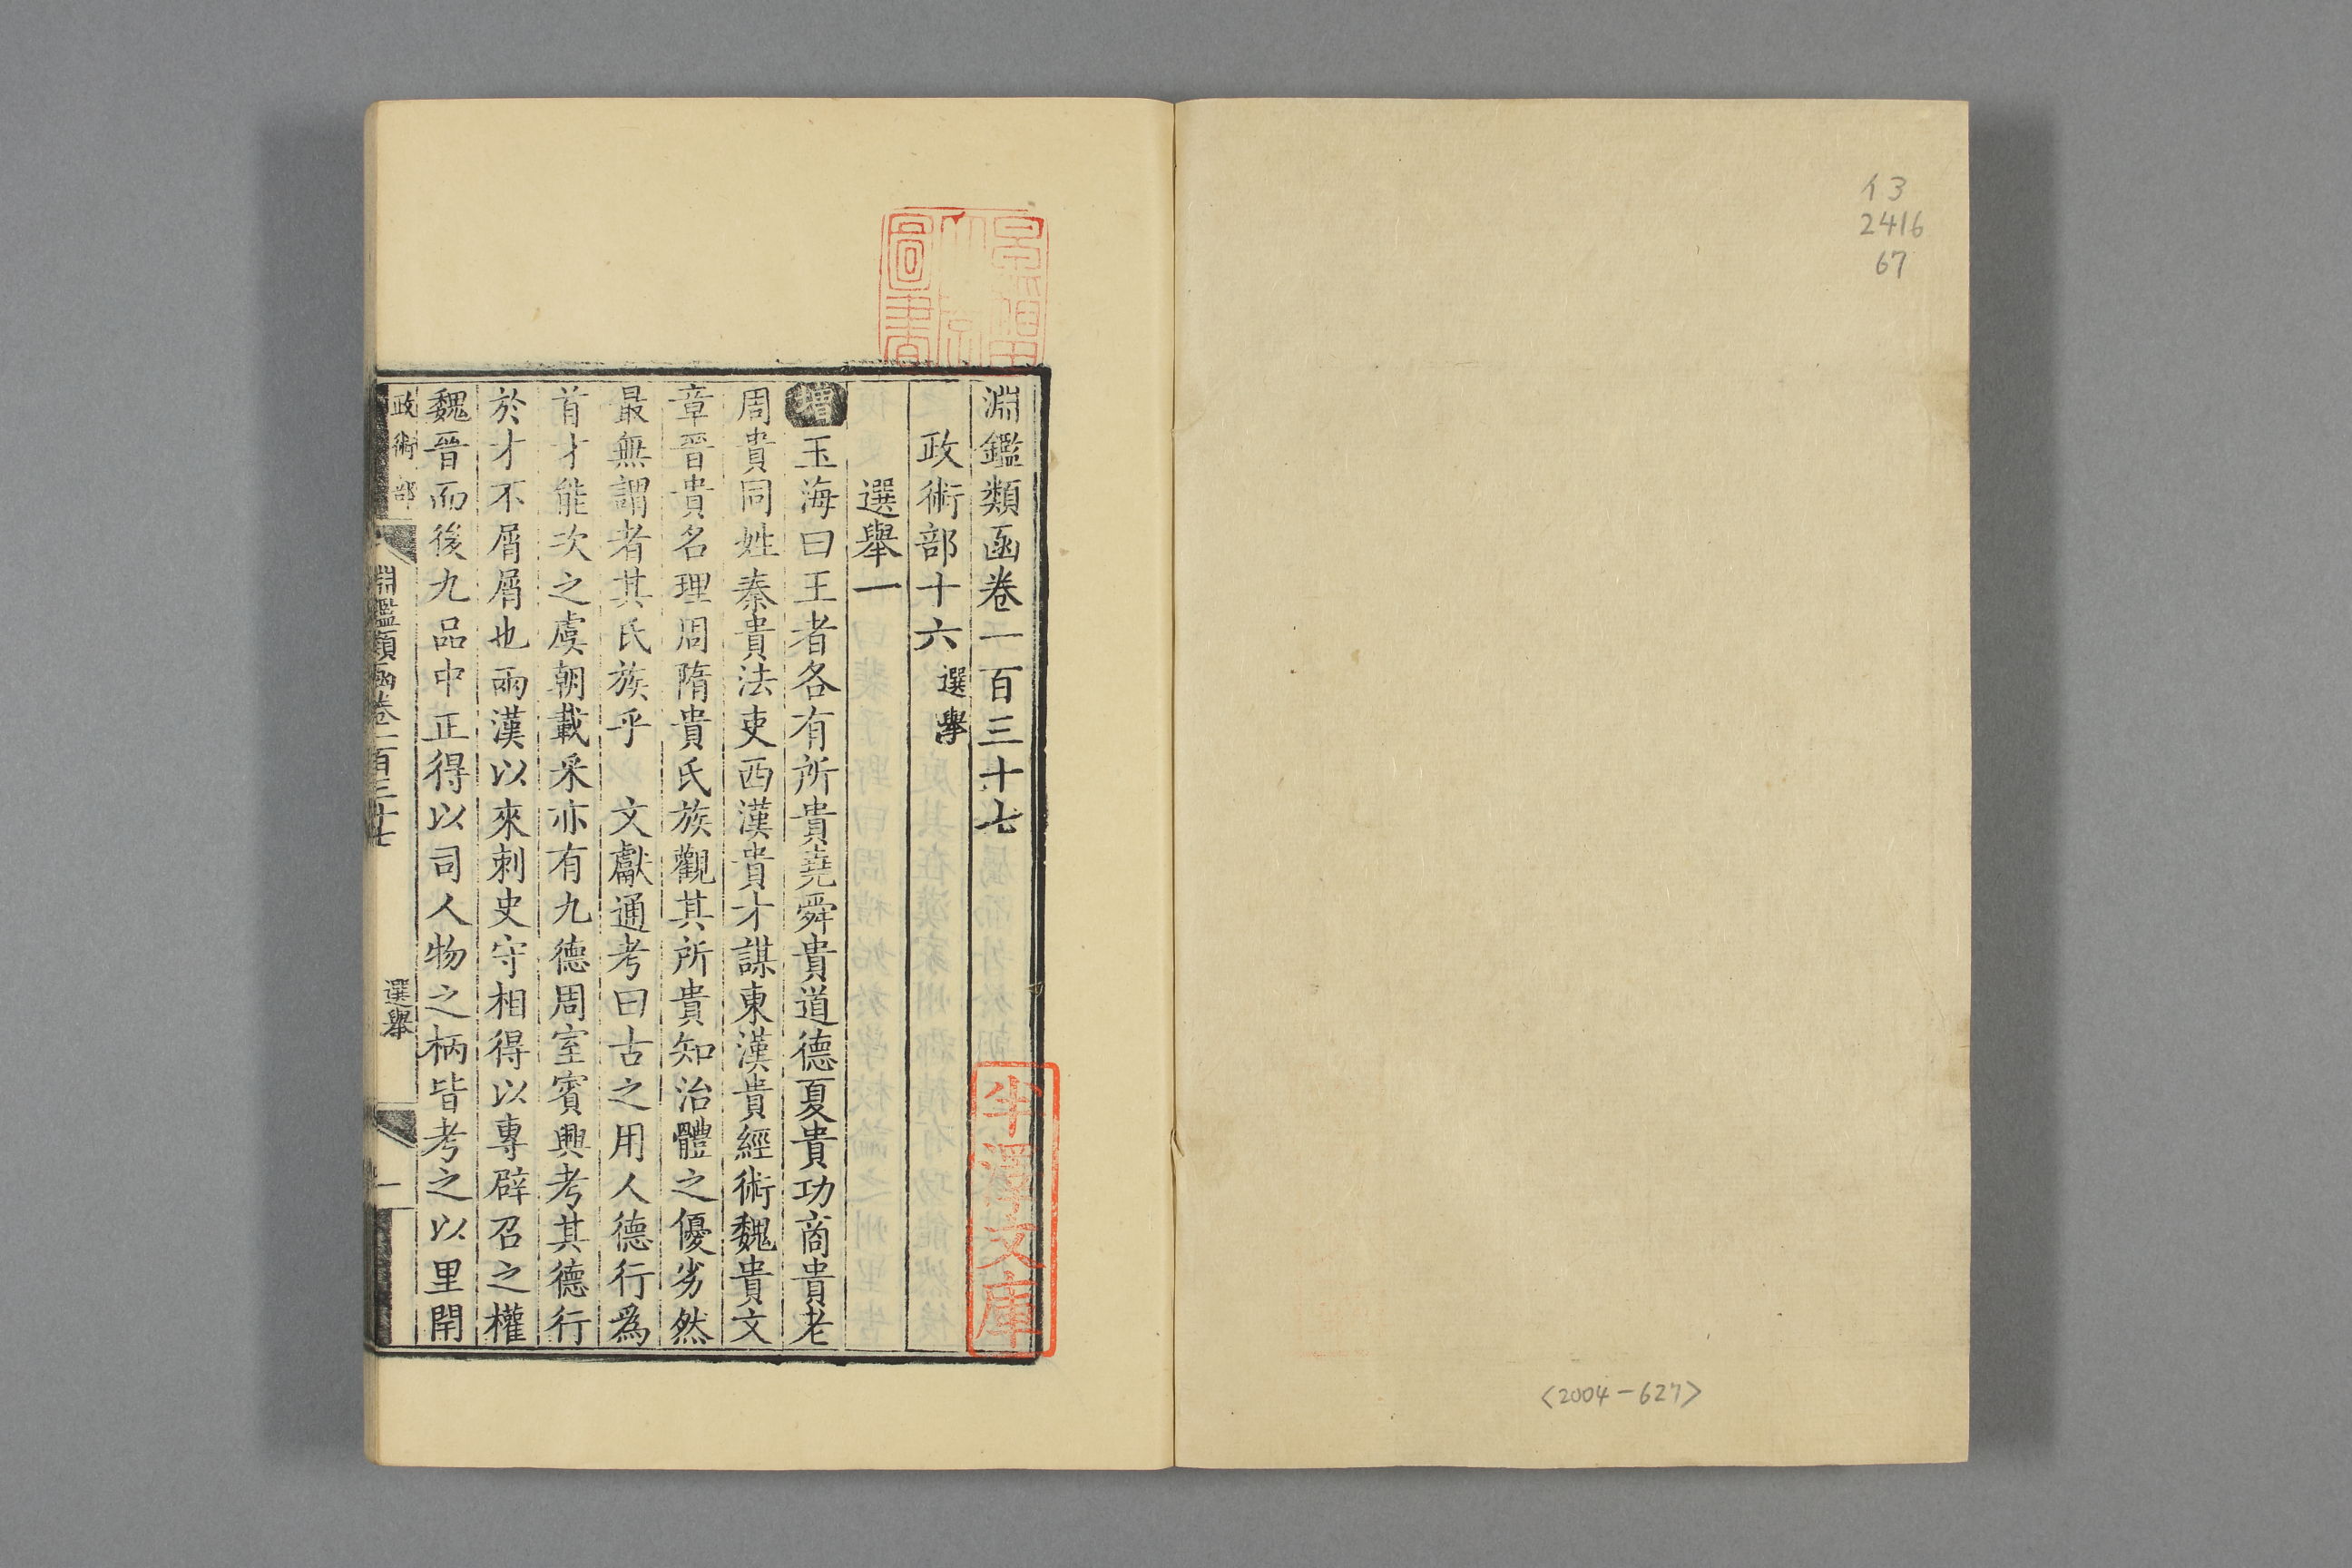 イ3
2416
67
<2004-627>
淵鑑類函卷一百三十七
政術部十六 選舉
選舉一
增 玉海曰王者各有所貴堯舜貴道德夏貴功商貴老
周貴同姓秦貴法吏西漢貴才謀東漢貴經術魏貴文
章晉貴名理周隋貴氏族觀其所貴知治體之優劣然
最無謂者其氏族乎 文獻通考曰古之用人德行爲
首才能次之虞朝載采亦有九德周室賓興考其德行
於才不屑屑也兩漢以來刺史守相得以專辟召之權
魏晉而後九品中正得以司人物之柄皆考之以里閈
政術部 淵鑑類函卷一百三十七 選舉 一
圖書
半澤文庫